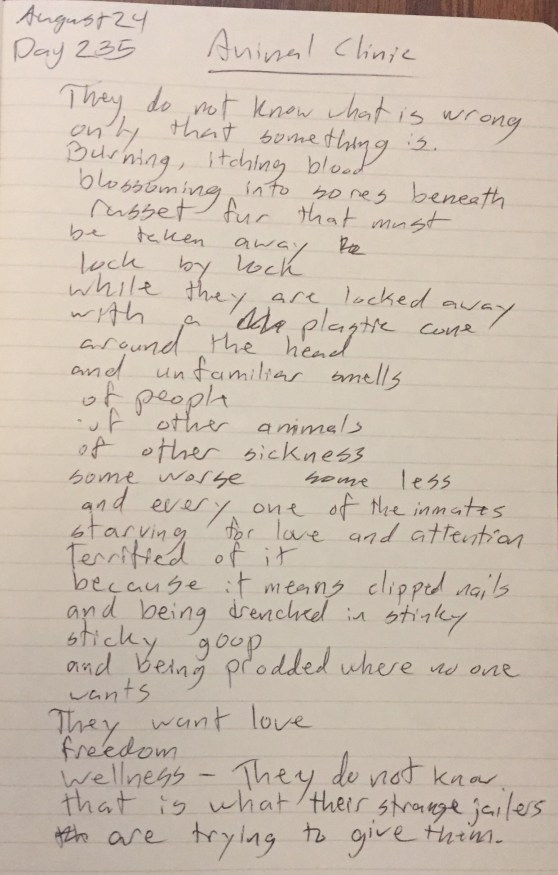 August 24
Day 235
Animal Clinic
They do not know what is wrong
only that something is.
Burning, itching blood
blossoming into sores beneath
russet fur that must
be taken away
lock by lock
while they are locked away
with a plastic cone
around the head
and unfamiliar smells
of people
of other animals
of other sickness
some worse some less
and every one of the inmates
starving for love and attention
Terrified of it
because it means clipped nails
and being drenched in stinky
sticky goop
and being prodded where no one
wants
They want love
freedom
wellness - They do not know
that is what their strange jailers
are trying to give them.